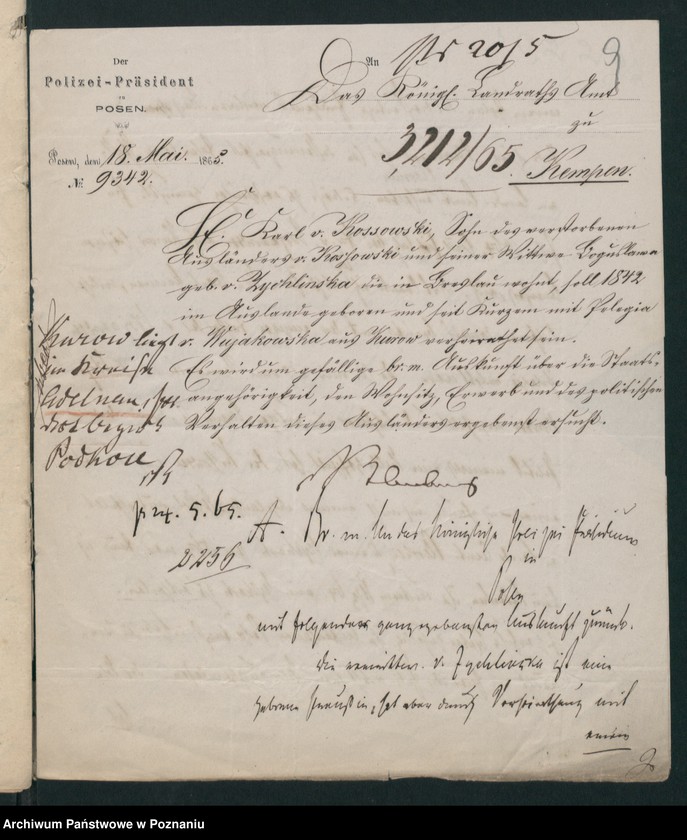 Der
Polizei-Präsident
zu
POSEN.
Posen, den 18. Mai. 1865.
№ 9342.
An
2015
9
Das Königl. Landraths Amt
zu
3212/65. Kempen.
Karl v. Kossowski, Sohn des verstorbenen
Ausländers v. Kossowski und seiner Wittwe Boguslawa
geb. v. Zychlinska die in Breslau wohnt, soll 1842
im Auslande geboren und seit Kurzem mit Pelegia
v. Wujakowska aus Kurow verheirathet sein.
Es wird um gefällige br. m. Auskunft über die Staats-
angehörigkeit, den Wohnsitz, Erwerb und das politischen
Verhalten dieses Ausländers ergebenst ersucht.
Kurow liegt
im Kreise
Adelnau,
2256
A. Br. m. An das Königliche Polizei Präsidium
in
Posen
mit folgender ganz ergebensten Auskunft zurück.
Die v. Zychlinska ist eine
geborene hat aber durch Verheirathung mit
einem
Archiwum Państwowe w Poznaniu